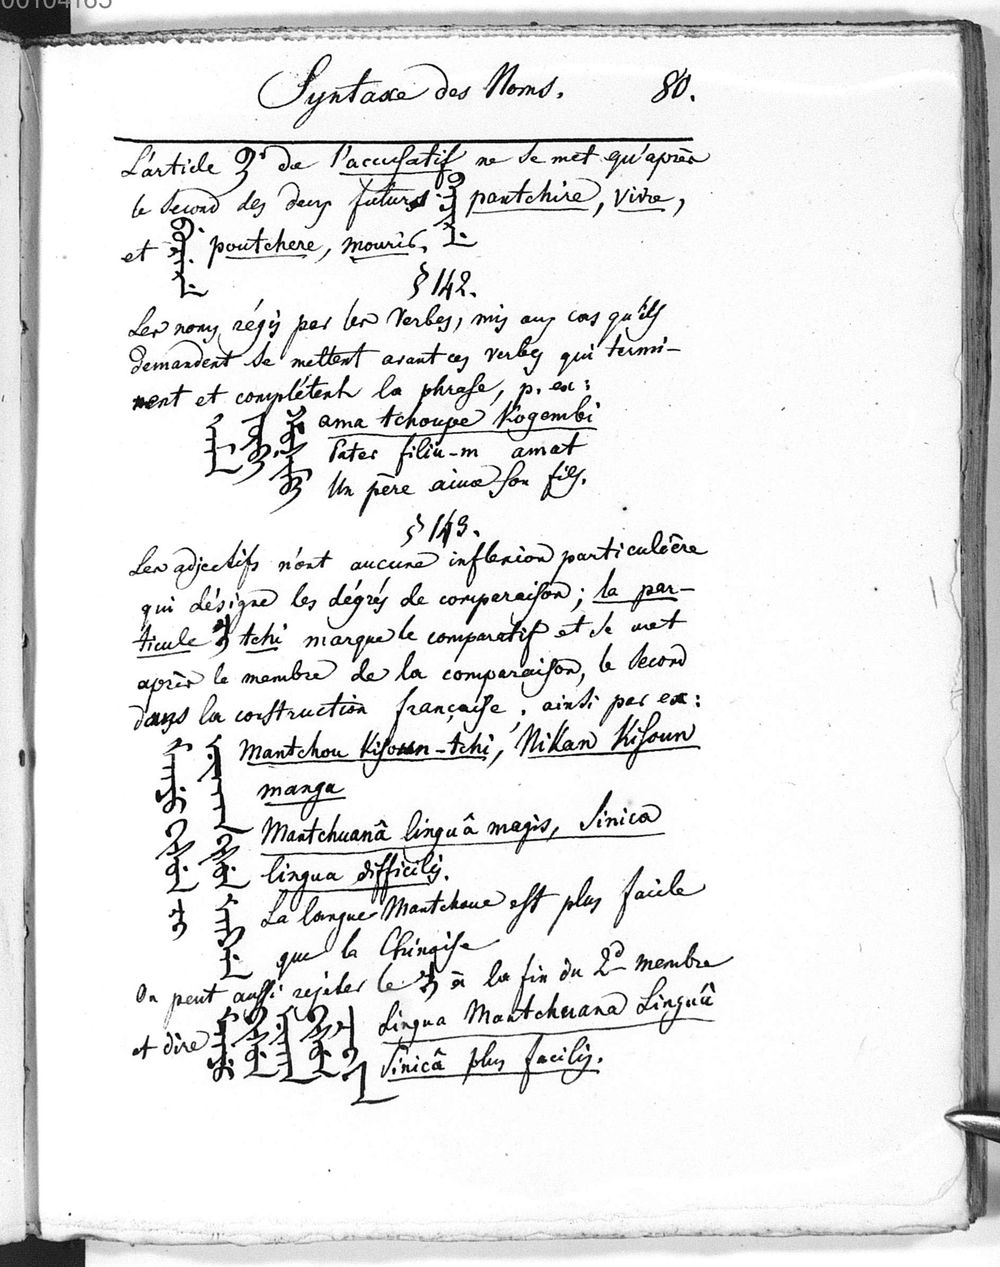 00104165
Syntaxe des Noms. 80.
L'article de l'accusatif ne se met qu'après
le second des deux futurs pantchire, vivre,
et poutchere, mourir.
§ 142.
Les noms régis par les verbes, mis aux cas qu'ils
demandent se mettent avant ces verbes qui termi-
nent et complétent la phrase, p. ex:
ama tchoupe Kogembi
Pater filiu-m amat
Un père aime son fils.
§ 143.
Les adjectifs n'ont aucune inflexion particulière
qui désigne les dégrés de comparaison; la par-
ticule ᠴᡳ tchi marque le comparatif et se met
après le membre de la comparaison, le second
dans la construction française, ainsi par ex:
Mantchou Kisoun-tchi, Nikan Kisoun
manga
Mantchuanâ linguâ magis, Sinica
lingua difficilis.
La langue Mantchoue est plus facile
que la Chinoise
On peut aussi rejeter le ᠴᡳ à la fin du 2d membre
et dire Lingua Mantchuana Linguâ
Sinicâ plus facilis.